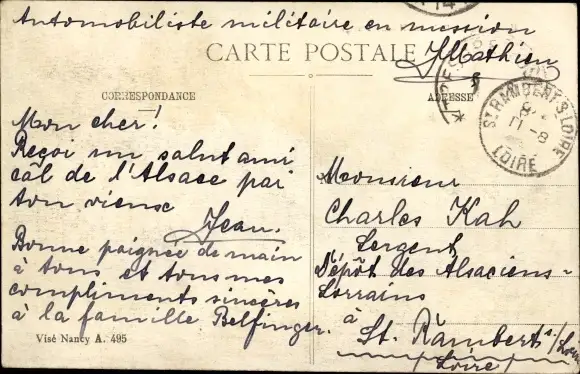 Automobiliste militaire en mission
J Mathieu
CARTE POSTALE
CORRESPONDANCE
ADRESSE
ST RAMBERT S LOIRE
11-8
LOIRE
Mon cher!
Reçoi un salut ami
câl de l'Alsace par
ton viense
Jean.
Bonne poignée de main
à tous et tous mes
compliments sincères
à la famille Belfinger.
Visé Nancy A. 495
Monsieur
Charles Kah
Sergent
Dépôt des Alsaciens-
Lorrains
à
St. Rambert s/Loire
Loire